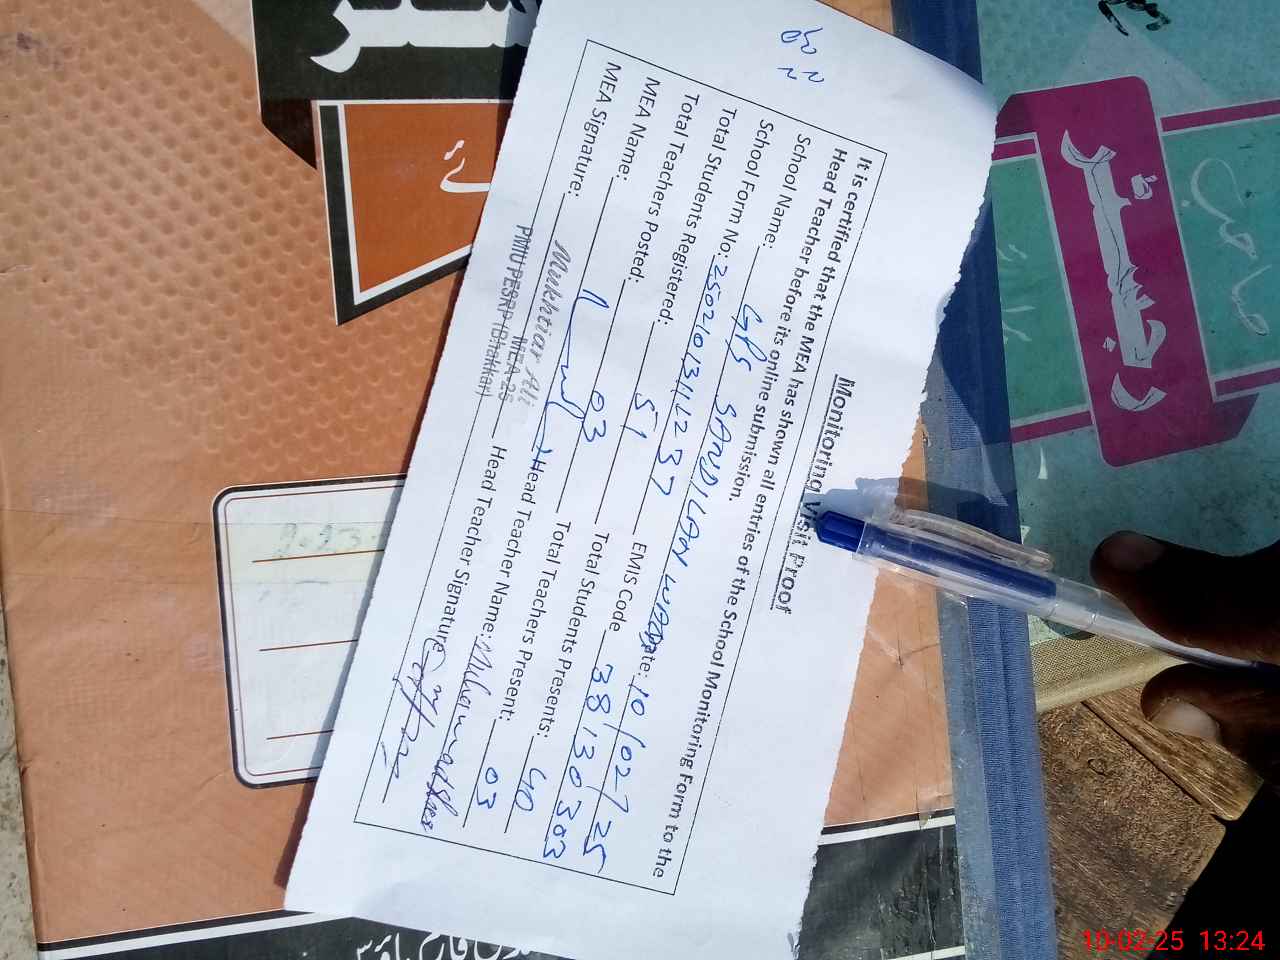 Monitoring Visit Proof
It is certified that the MEA has shown all entries of the School Monitoring Form to the
Head Teacher before its online submission.
School Name: GPS SANDILAN WALA Date: 10/02/25
School Form No: 2502101311237 EMIS Code 38130303
Total Students Registered: 51 Total Students Presents: 40
Total Teachers Posted: 03 Total Teachers Present: 03
MEA Name: Mukhtiar Ali Head Teacher Name: Muhammad
MEA Signature: Head Teacher Signature
MEA 25
PMIU PESRP (Bhakkar)
رجسٹر
10-02-25 13:24